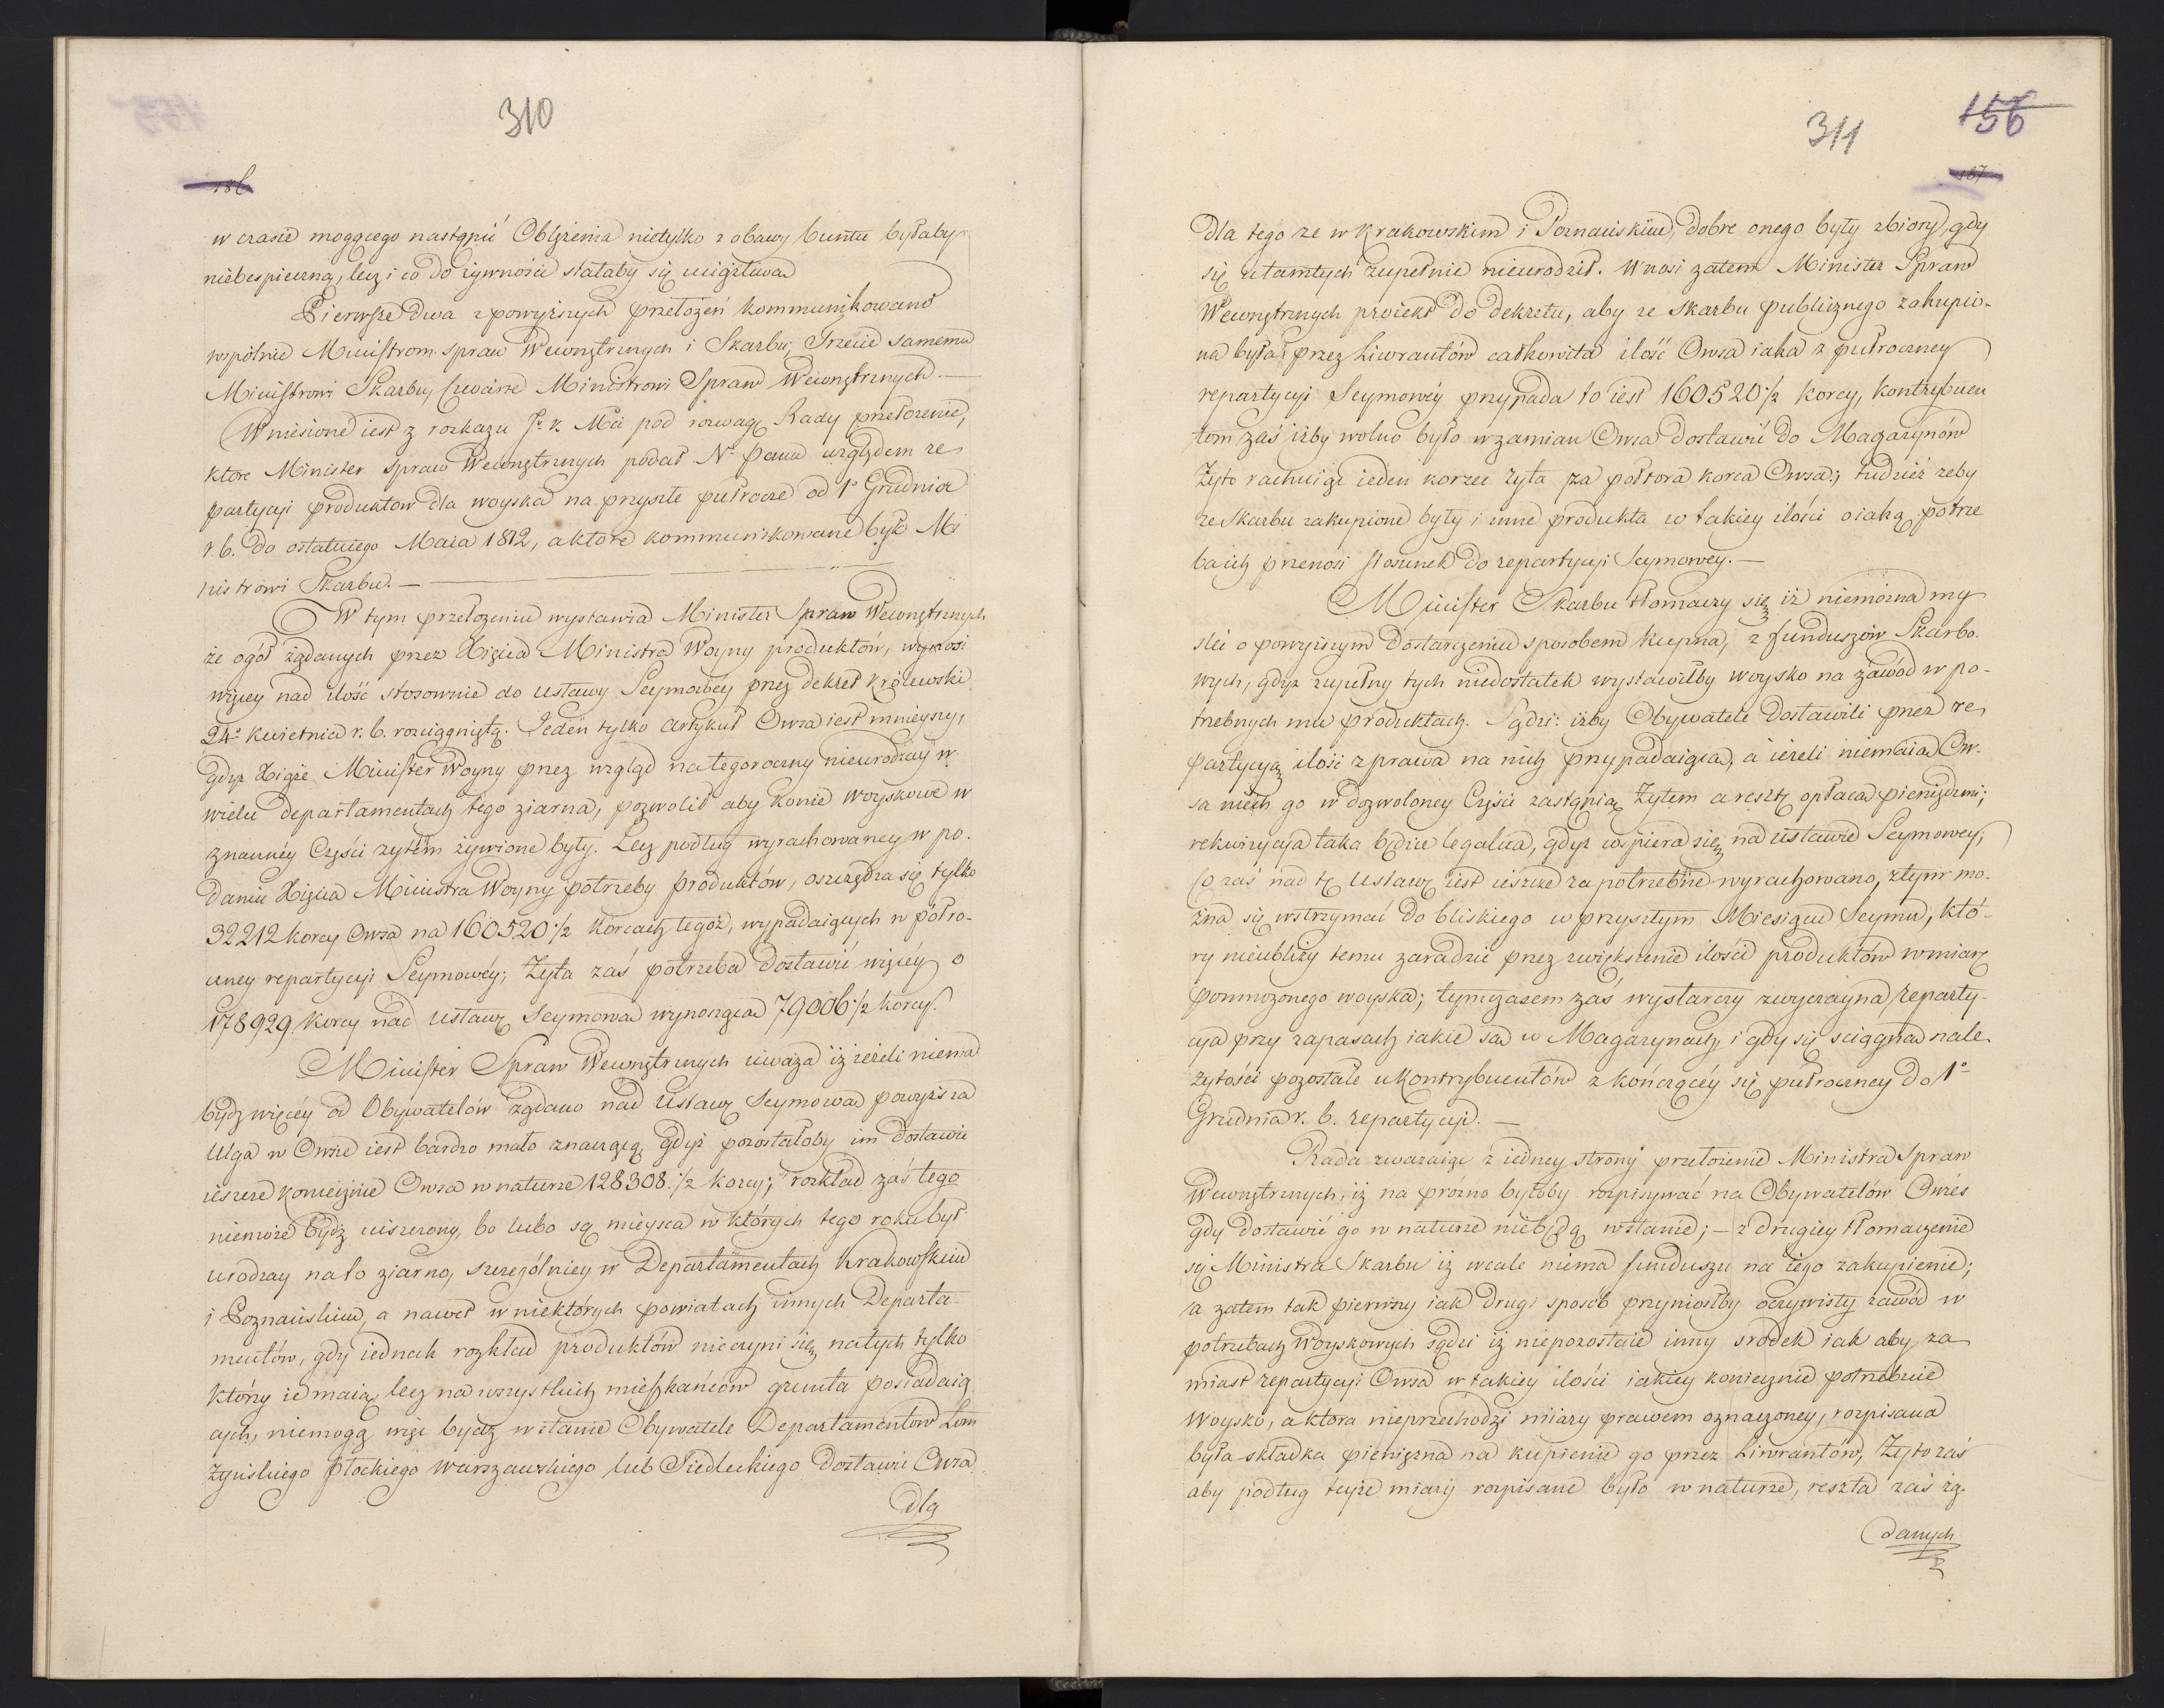 310
186
w czasie mogącego nastąpić Oblężenia nietylko z obawy buntu byłaby
niebespieczną, lecz i co do żywności stałaby się uciążliwa
Pierwsze dwa z powyższych przełożeń kommunikowano
wspólnie Ministrom spraw Wewnętrznych i Skarbu; Trzecie samemu
Ministrowi Skarbu, Czwarte Ministrowi Spraw Wewnętrznych. —
Wniesione iest z rozkazu J. K. Mci pod rozwagę Rady przełożenie,
ktore Minister spraw Wewnętrznych podał N. Panu względem re
partycyi produktow dla woyska na przyszłe pułrocze od 1o Grudnia
r. b. do ostatniego Maia 1812, a ktore kommunikowane było Mi
nistrowi Skarbu. —
W tym przełożeniu wystawia Minister Spraw Wewnętrznych
że ogół żądanych przez Xięcia Ministra Woyny produktów, wynosi
więcey nad ilość stosownie do ustawy Seymowey przez dekret Królewski
24o Kwietnia r. b. rozciągniętą. Jeden tylko artykuł Owsa iest mnieyszy,
gdyż Xiąże Minister Woyny przez wzgląd na tegoroczny nieurodzay w
wielu departamentach tego ziarna, pozwolił aby konie woyskowe w
znaczney Części żytem żywione były. Lecz podług wyrachowaney w po-
daniu Xięcia Ministra Woyny potrzeby produktów, oszczędza się tylko
32212 korcy Owsa na 160520 1/2 korcach tegoż, wypadaiących w półro-
czney repartycyi Seymowéy; Żyta zaś potrzeba dostawić więcéy o
178929. korcy nad ustawę Seymowa wynoszącą 79006 1/2 korcy.
Minister Spraw Wewnętrznych uważa iż ieżeli niema
bydź więcéy od Obywatelów żądano nad Ustawę Seymowa powyższa
ulga w Owsie iest bardzo mało znaczącą, gdyż pozostałoby im dostawić
ieszcze koniecznie Owsa w naturze 128308. 1/2 korcy; rozkład zaś tego
niemoże bydź uiszczony, bo lubo są mieysca w których tego roku był
urodzay na to ziarno, szczególniey w Departamentach Krakowskim
i Poznańskim, a nawet w niektórych powiatach innych Departa-
mentów, gdy iednak rozkład produktów nieczyni się na tych tylko
którzy ie maią, lecz na wszystkich mieszkańcow grunta posiadaią
cych, niemogą więc bydź w stanie Obywatele Departamentow Łom
żyńskiego Płockiego Warszawskiego lub Siedleckiego dostawić Owsa
dla
311
156
187
dla tego że w Krakowskim i Poznańskim, dobre onego były zbiory, gdy
się u tamtych zupełnie nieurodził. Wnosi zatem Minister Spraw
Wewnętrznych proiekt do dekretu, aby ze Skarbu publicznego zakupio-
na była przez Liwrantów całkowita ilość Owsa iaka z pułroczney
repartycyi Seymowéy przypada to iest 160520 1/2 korcy, kontrybuen
tom zaś iżby wolno było w zamian Owsa dostawić do Magazynów
Żyto rachuiąc ieden korzec żyta za półtora korca Owsa; tudzież żeby
ze Skarbu zakupione były i inne produkta w takiey ilości o iaką potrze
ba ich przenosi stosunek do repartycyi Seymowey. —
Minister Skarbu tłomaczy się iż niemożna my
śleć o powyższym dostarczeniu sposobem kupna, z funduszów Skarbo-
wych, gdyż zupełny tych niedostatek wystawiłby woysko na zawód w po-
trzebnych mu produktach. Sądzi: iżby Obywatele dostawili przez re
partycyą ilości z prawa na nich przypadaiąca, a ieżeli niemaią Ow-
sa niech go w dozwoloney Części zastąpią Żytem a resztę opłaca pieniędzmi;
rekwizycya taka będzie legalna, gdyż wspiera się na ustawie Seymowey;
Co zaś nad tę Ustawę iest ieszcze za potrzebne wyrachowano, z tym mo-
żna się wstrzymać do bliskiego w przyszłym Miesiącu Seymu, któ-
ry nieubliży temu zaradzić przez zwiększenie ilości produktów w miarę
pomnożonego woyska; tymczasem zaś wystarczy zwyczayna reparty-
cya przy zapasach iakie są w Magazynach, i gdy się ściągną nale
żytości pozostałe u Kontrybuentów z kończącéy się pułroczney do 1o
Grudnia r. b. repartycyi. —
Rada zważaiąc z iedney strony przełożenie Ministra Spraw
Wewnętrznych, iż na próżno byłoby rozpisywać na Obywatelów Owies
gdy dostawić go w naturze niebędą w stanie; — z drugiey tłomaczenie
się Ministra Skarbu iż wcale niema funduszu na iego zakupienie;
a zatem tak pierwszy iak drugi sposób przyniosłby oczywisty zawód w
potrzebach Woyskowych sądzi iż niepozostaie inny srodek iak aby za
miast repartycyi Owsa w takiey ilości iakiey koniecznie potrzebuie
Woysko, a która nieprzechodzi miary prawem oznaczoney, rozpisana
była składka pieniężna na kupienie go przez Liwrantów, Żyto zaś
aby podług teyże miary rozpisane było w naturze, reszta zaś żą-
danych